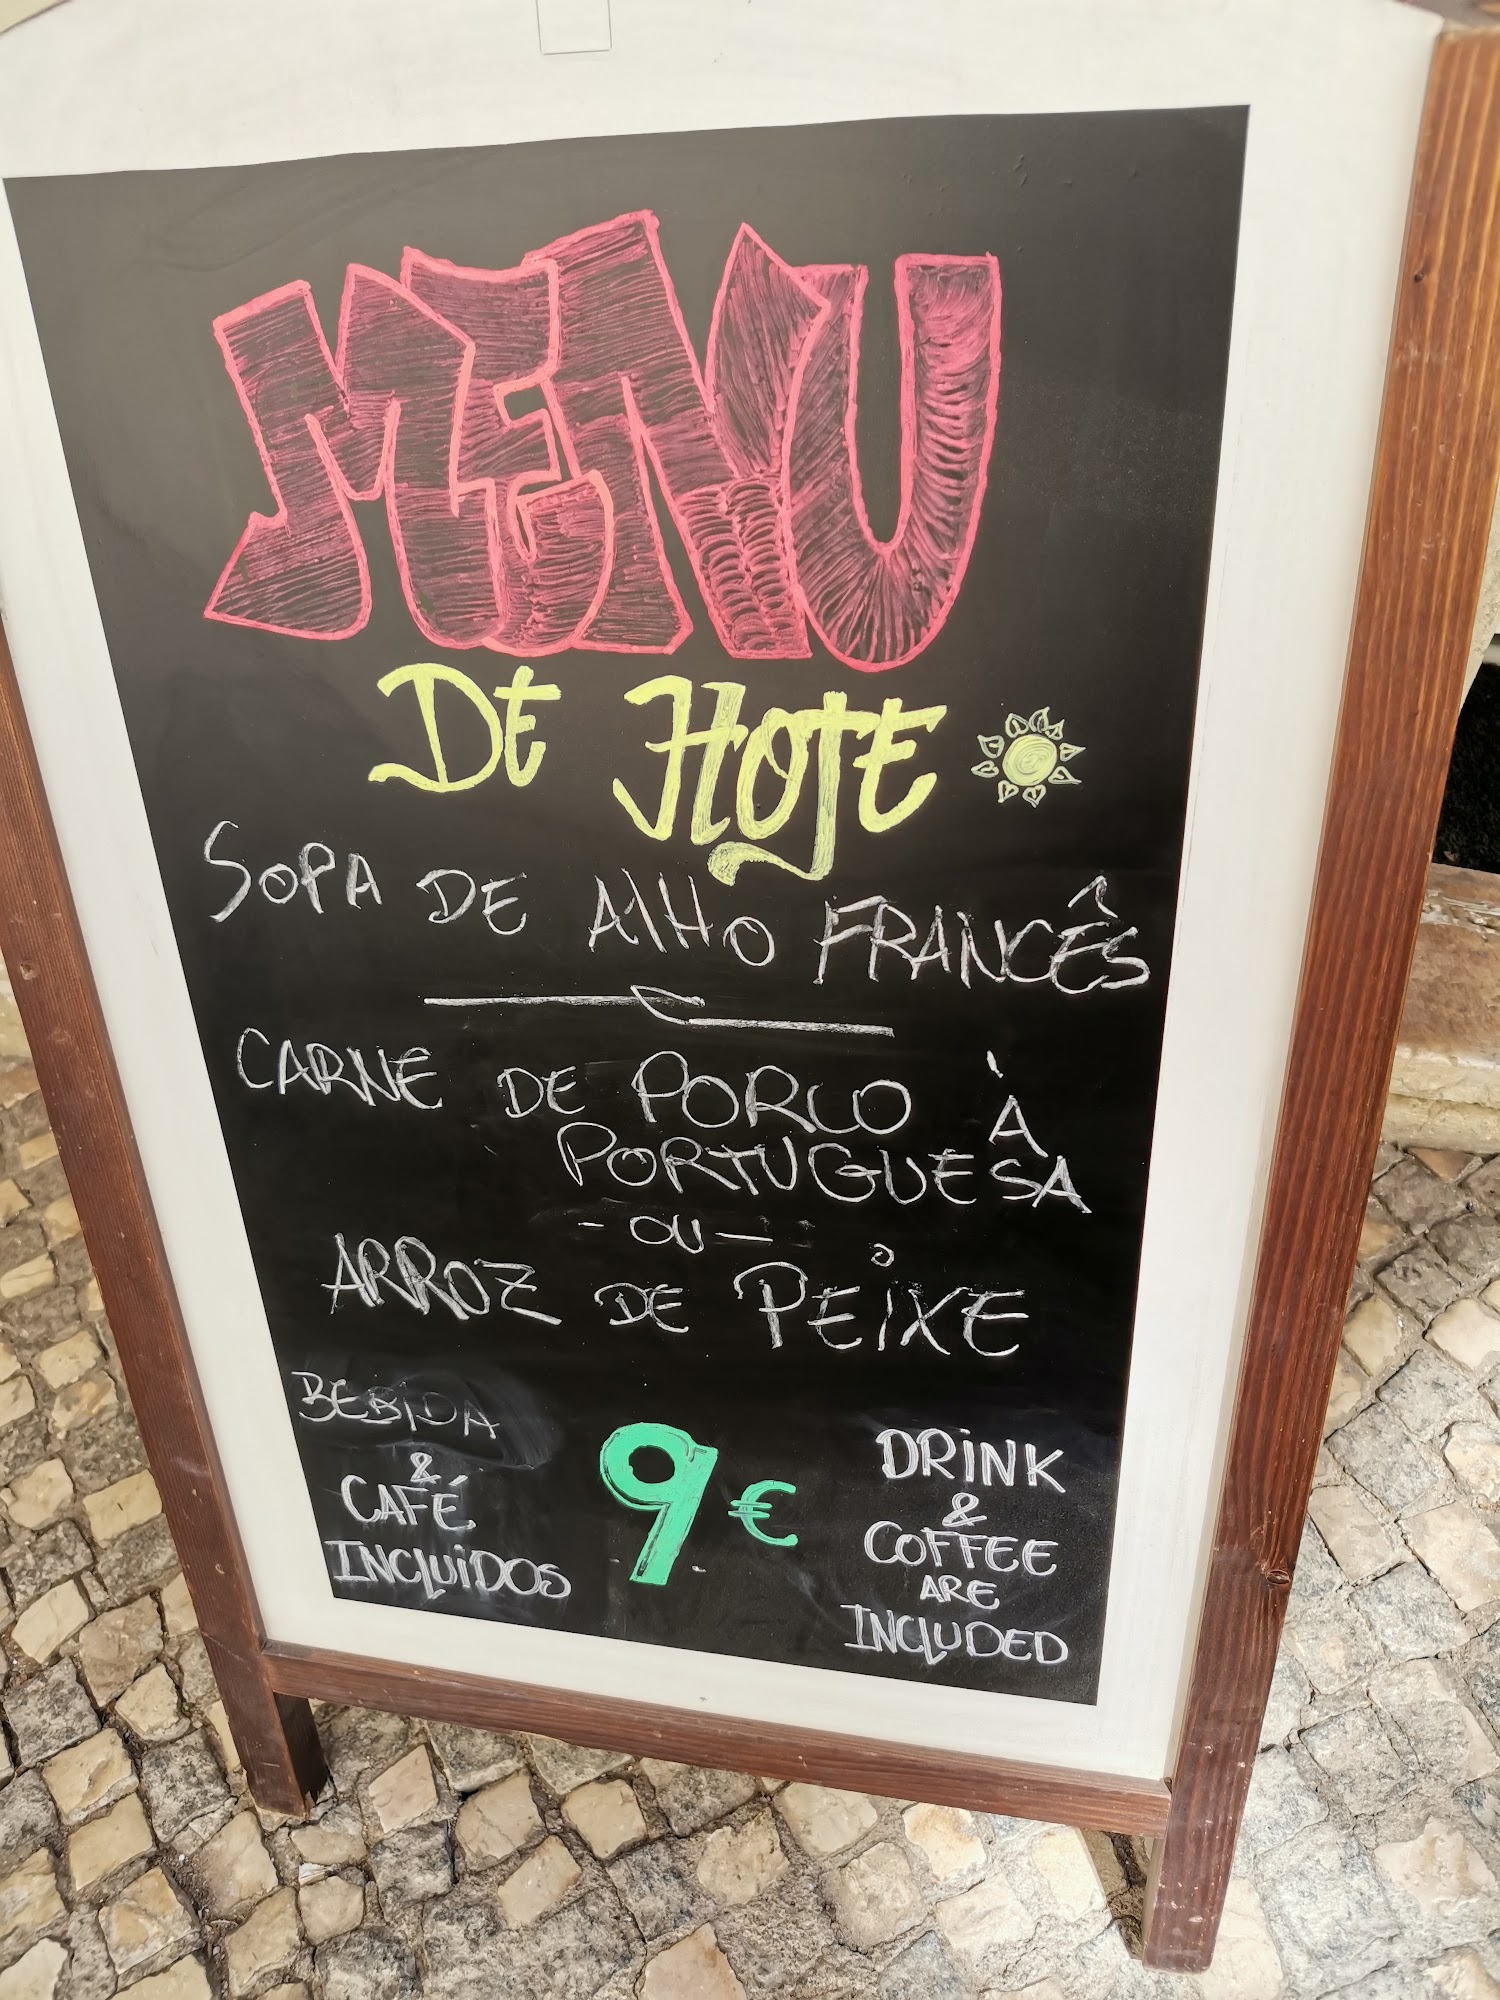 MENU
DE HOJE
SOPA DE AlHO FRANCÊS
CARNE DE PORCO À
PORTUGUESA
- OU -
ARROZ DE PEIXE
BEBIDA
&
CAFÉ
INCLUÍDOS
9€
DRINK
&
COFFEE
ARE
INCLUDED